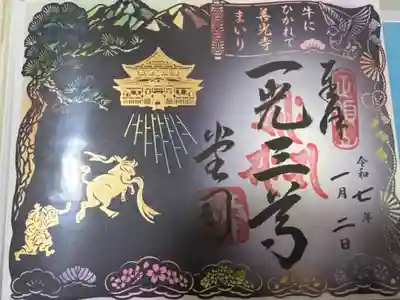 牛に
ひかれて
善光寺
まいり
奉拝
一光三尊
堂司
令和七年
一月二日